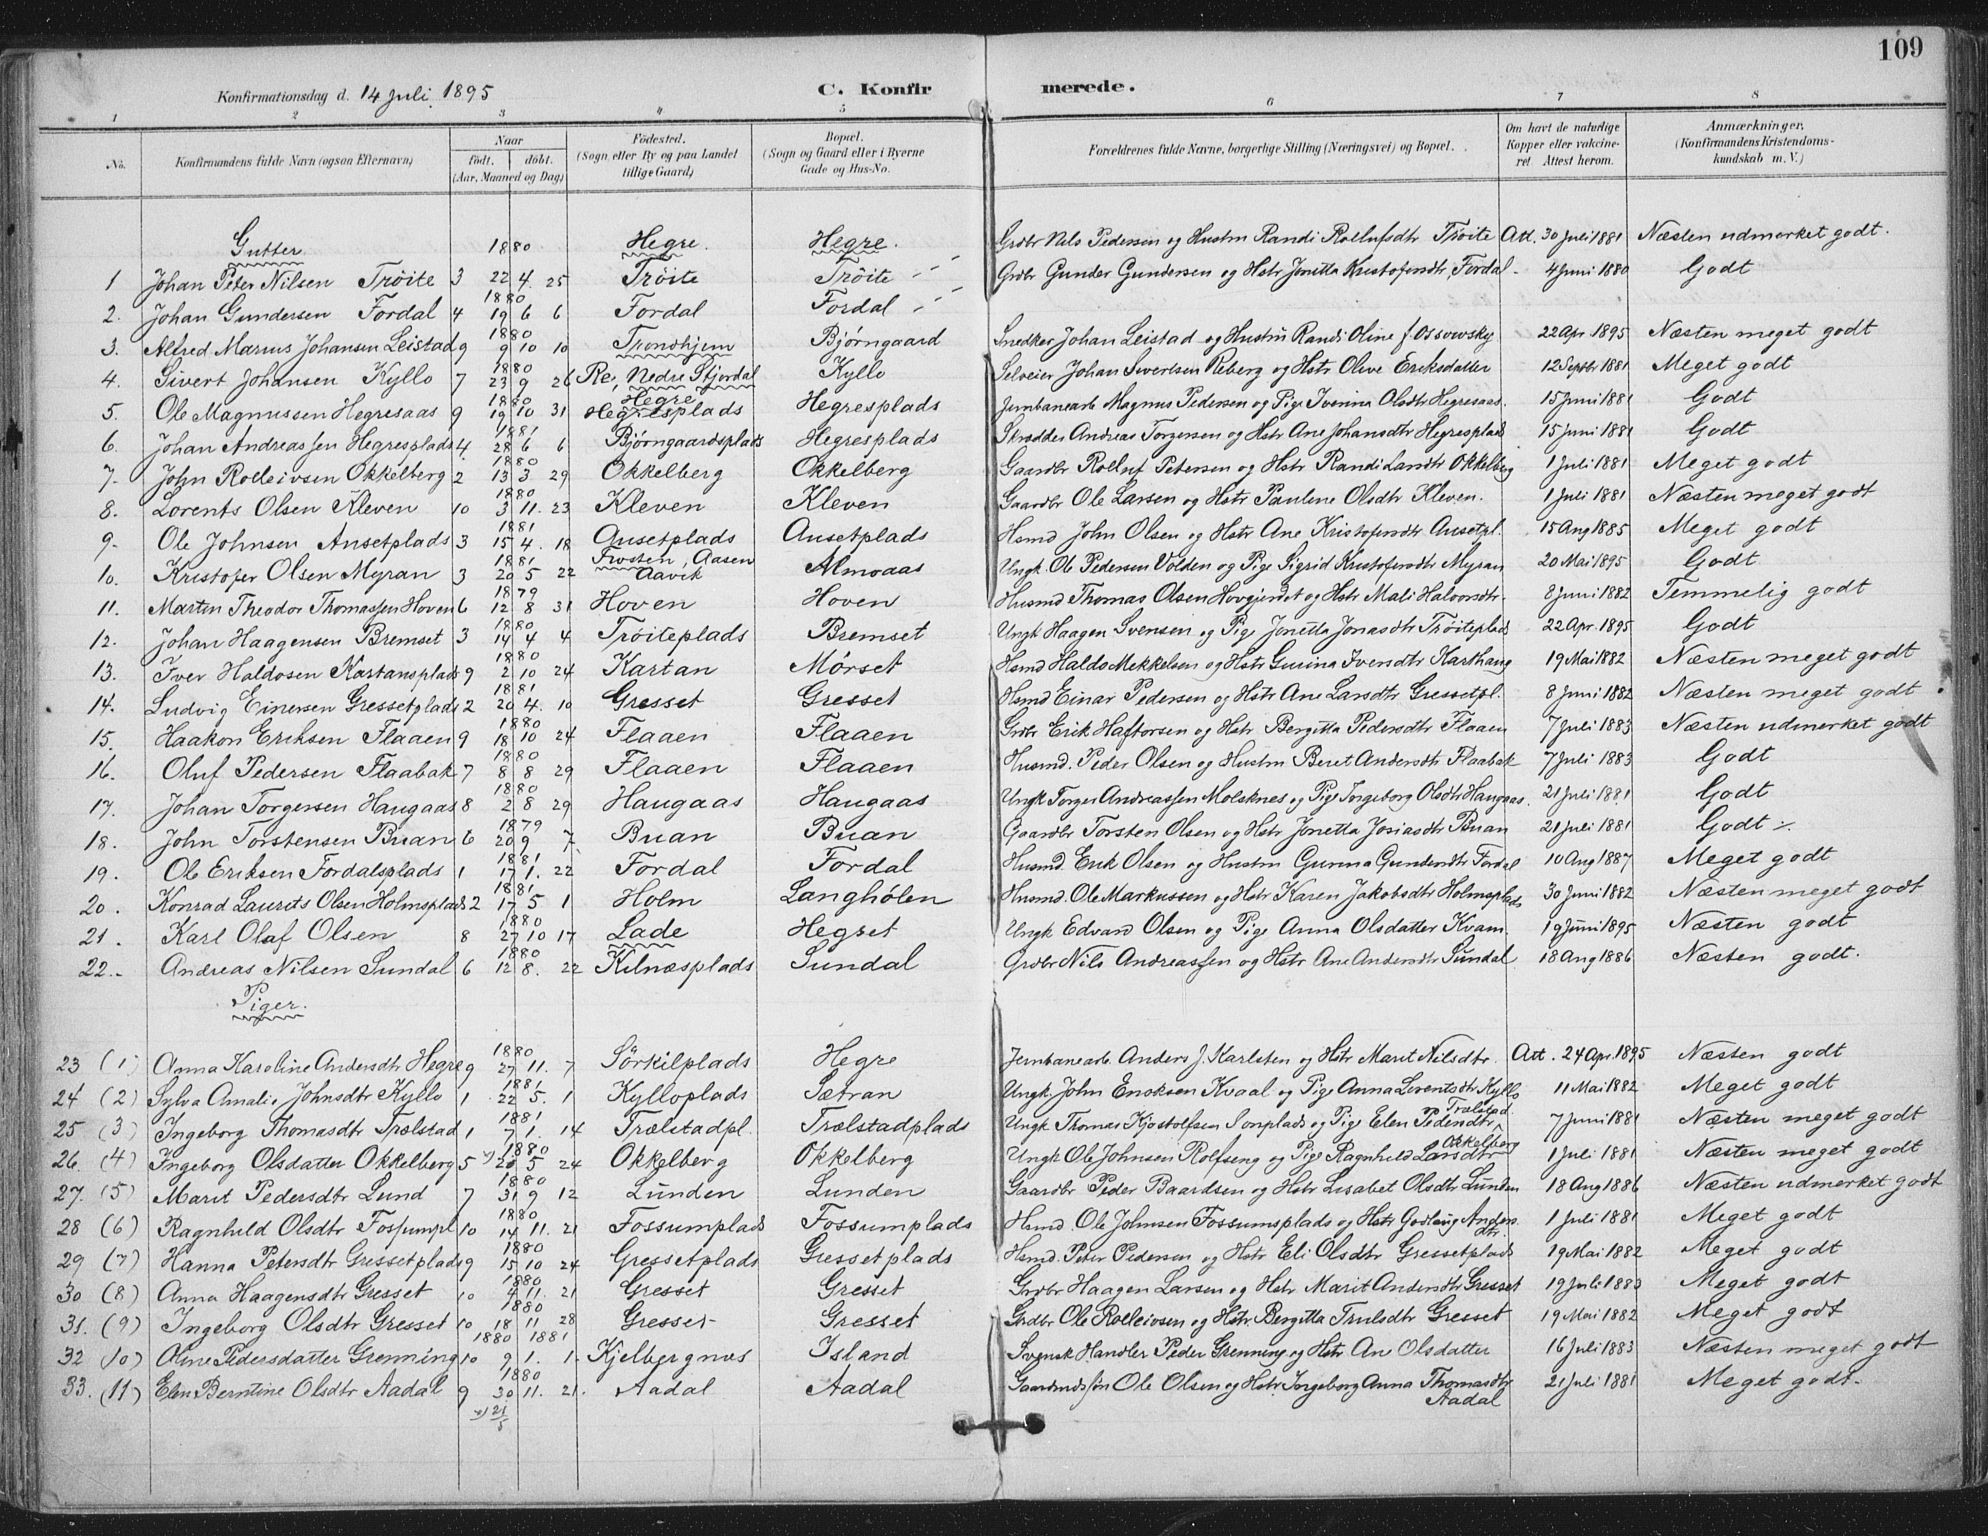 109
Konfirmationsdag d. 14 Juli 1895 C. Konfirmerede.
1 2 3 4 5 6 7 8
No. Konfirmandens fulde Navn (ogsaa Efternavn) Naar født. døbt. (Aar, Maaned og Dag) Fødested. (Sogn eller By og paa Landet tillige Gaard) Bopæl. (Sogn og Gaard eller i Byerne Gade og Hus-No. Forældrenes fulde Navne, borgerlige Stilling (Næringsvei) og Bopæl. Om havt de naturlige Kopper eller vaccineret. Attest herom. Anmærkninger. (Konfirmandens Kristendomskundskab m. V.)
Gutter 1880 Hegre. Hegre.
1 Johan Peter Nilsen Tröite 3 22 4. 25 Tröite Tröite Grdbr Nels Pedersen og Hustru Randi Rollufsdtr Tröite Att. 30 Juli 1881 Næsten udmerket godt.
2. Johan Gundersen Fordal 4 1880 19 6 6 Fordal Fordal Grdbr Gunder Gundersen og Hstr Jonetta Kristofersdtr Fordal 4 Juni 1880 Godt
3. Alfred Marius Johansen Leistad 9 1880 9 10 10 Trondhjem Bjørngaard Snedker Johan Leistad og Hustru Randi Oline f. Ossowsky 22 Apr. 1895 Næsten meget godt
4. Sivert Johansen Kyllo 7 1880 23 9 26 Re, Nedre Stjørdal Kyllo Selveier Johan Sivertsen Reberg og Hstr Olive Eriksdatter 12 Septbr 1881 Meget godt
5. Ole Magnussen Hegresaas 9 1880 19 10 31 Hegre Hegresplads Hegresplads Jernbanearb Magnus Pedersen og Pige Ivenna Olsdtr Hegresaas. 15 Juni 1881 Godt
6. Johan Andreassen Hegresplads 4 1881 28 6 6 Bjørngaardsplads Hegresplads Skrædder Andreas Torgersen og Hstr Ane Johansdtr Hegresplads 15 Juni 1881 Godt
7. John Rolleivsen Okkelberg 2 1880 13 3 29 Okkelberg Okkelberg Gaardbr Rolluf Petersen og Hstr Randi Larsdtr Okkelberg 1 Juli 1881 Meget godt
8. Lorents Olsen Kleven 10 1880 3 11. 23 Kleven Kleven Gaardbr Ole Larsen og Hstr Pauline Olsdtr Kleven. 1 Juli 1881 Næsten meget godt
9. Ole Johnsen Ansetplads 3 1881 15 4. 18 Ansetplads Ansetplads Hsmd John Olsen og Hstr Ane Kristofersdtr Ansetpl. 15 Aug 1885 Meget godt
10. Kristofer Olsen Myran 3 1881 20 5 22 Frosten, Aasen Aavik Almoaas Ungk. Ole Pedersen Volden og Pige Sigrid Kristofersdtr Myran 20 Mai 1895 Godt
11. Marten Theodor Thomassen Hoven 6 1879 12 8 31 Hoven Hoven Husmd Thomas Olsen Hovgjerdet og Hstr Mali Halvorsdtr. 8 Juni 1882 Temmelig godt
12. Johan Haagensen Bremset 3 1880 14 4 4 Tröiteplads Bremset Ungk Haagen Svensen og Pige Jonetta Jonasdtr Tröiteplads 22 Apr. 1895 Godt
13. Iver Haldosen Kartansplads 9 1880 2 10 24 Kartan Mörset Hsmd Haldo Mekkelsen og Hstr Gurina Iversdtr Karthaug 19 Mai 1882 Næsten meget godt
14. Ludvig Einersen Gressetplads 2 1881 20 4. 10 Gresset Gresset Hsmd Einar Pedersen og Hstr Ane Larsdtr Gressetpl. 8 Juni 1882 Næsten meget godt
15. Haakon Eriksen Flaaen 9 1880 18 10 24 Flaaen Flaaen Grdbr Erik Haftorsen og Hstr Bergitta Pedersdtr Flaaen 7 Juli 1883 Næsten udmerket godt
16. Oluf Pedersen Flaabak 7 1880 8 8 29 Flaaen Flaaen Husmd. Peder Olsen og Hustru Beret Andersdtr Flaabak 7 Juli 1883 Godt
17. Johan Torgersen Haugaas 8 1880 2 8 29 Haugaas Haugaas Ungk Torger Andreassen Molsknes og Pige Ingeborg Olsdtr Haugaas. 21 Juli 1881 Godt
18. John Torstensen Buan 6 1879 20 9 7 Buan Buan Gaardbr Torsten Olsen og Hstr Jonetta Josiasdtr Buan 21 Juli 1881 Godt
19. Ole Eriksen Fordalsplads 1 1881 17 1. 22 Fordal Fordal Husmd. Erik Olsen og Hustru Gunna Gundersdtr Fordal 10 Aug 1887 Meget godt
20. Konrad Laurits Olsen Holmsplads 2 1881 17 5 1 Holm Langhölen Husmd. Ole Markussen og Hstr Karen Jakobsdtr Holmsplads 30 Juni 1882 Næsten meget godt
21. Karl Olaf Olsen 8 1880 27 10 17 Lade Hegset Ungk Edvard Olsen og Pige Anna Olsdatter Kvam. 19 Juni 1895 Næsten godt
22. Andreas Nilsen Sundal 6 1880 12 8. 22 Kilnæsplads Sundal Grdbr Nils Andreassen og Hstr Ane Andersdtr Sundal 18 Aug 1886 Næsten godt.
Piger.
23 (1) Anna Karoline Andersdtr Hegre 9 1880 27 11. 7 Sörkilplads Hegre Jernbanearb Anders J. Karlsten og Hstr Marit Nilsdtr. Att. 24 Apr. 1895 Næsten godt
24 (2) Sylva Amalie Johnsdtr Kyllo 1 1881 22 5. 1 Kylloplads Sætran Ungk. John Eriksen Kvaal og Pige Anna Lorentsdtr Kyllo 11 Mai 1882 Meget godt
25 (3) Ingeborg Thomasdtr Trælstad 1 1881 7 1. 14 Trælstadpl. Trælstadplads Ungk Thomas Kjostolfsen Sonplads og Pige Elen Pedersdtr Trælstad. 7 Juni 1881 Næsten meget godt
26. (4) Ingeborg Olsdatter Okkelberg 5 1880 20 5 24 Okkelberg Okkelberg Ungk Ole Johnsen Rolfseng og Pige Ragnhild Larsdtr Okkelberg 1 Juli 1881 Næsten meget godt
27. (5) Marit Pedersdtr Lund 7 1880 31 9 12 Lunden Lunden Gaardbr Peder Baardsen og Hstr Lisabet Olsdtr Lunden 18 Aug 1886 Næsten udmerket godt
28 (6) Ragnhild Olsdtr Fossumpl 10 1880 14 11. 21 Fossumplads Fossumplads Hsmd. Ole Johnsen Fossumsplads og Hstr Godlaug Andersdtr. 1 Juli 1881 Meget godt
29 (7) Hanna Petersdtr Gressetplads 9 1880 15 10 24 Gressetplads Gressetplads Hsmd. Peter Pedersen og Hstr Eli Olsdtr Gressetplads 19 Mai 1882 Meget godt
30 (8) Anna Haagensdtr Gresset 10 1880 4 11. 21 Gresset Gresset Grdbr Haagen Larsen og Hstr Marit Andersdtr Gresset 19 Juli 1883 Meget godt
31. (9) Ingeborg Olsdtr Gresset 10 1880 18 11 28 Gresset Gresset Grdbr Ole Rolleivsen og Hstr. Bergitta Trulsdtr Gresset 19 Mai 1882 Meget godt
32 (10) Oline Pedersdatter Grenning 10 1880 1881 9 1. 1. Kjelbergnæs Island Svensk Handler Peder Grenning og Hstr Ane Olsdatter 16 Juli 1883 Næsten meget godt
33. (11) Elen Berntine Olsdtr Aadal 9 1880 30 11. 21. Aadal Aadal Ole Olsen og Hstr Ingeborg Anna Thomasdtr Aadal 21 Juli 1881 Meget godt.
21/5